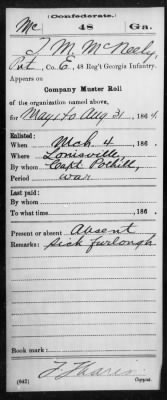 (Confederate.)
Mc 48 Ga.
T M McNeely
Pvt, Co. E, 48 Reg't Georgia Infantry.
Appears on
Company Muster Roll
of the organization named above,
for May & to Aug 31, 1864.
Enlisted:
When Mch 4, 186
Where Louisville,
By whom Capt Polhill,
Period war
Last paid:
By whom
To what time , 186 .
Present or absent Absent
Remarks: Sick furlough
Book mark:
(642) Copyist.